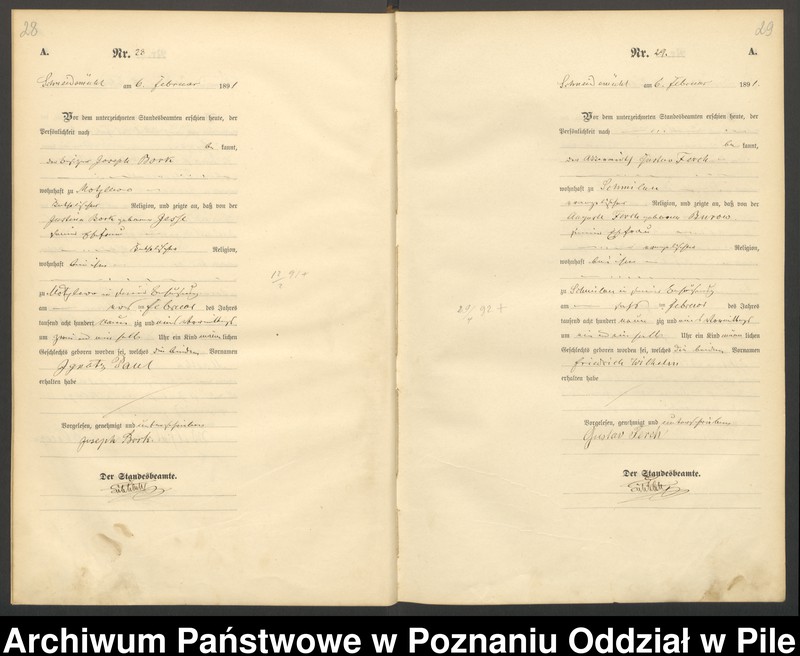 28
A.
Nr. 28
Schneidemühl am 6. Februar 1891
Vor dem unterzeichneten Standesbeamten erschien heute, der
Persönlichkeit nach
be kannt,
der Joseph Bork
wohnhaft zu
katholischer Religion, und zeigte an, daß von der
Justina Bork geborene
seiner Ehefrau
katholischer Religion,
wohnhaft bei ihm
zu in seiner Behausung
am Februar des Jahres
tausend acht hundert neun zig und eins Vormittags
um zwei und ein halb Uhr ein Kind männlichen
Geschlechts geboren worden sei, welches die beiden Vornamen
Ignatz Paul
erhalten habe
Vorgelesen, genehmigt und unterschrieben
Joseph Bork
Der Standesbeamte.
29
Nr. 29.
A.
Schneidemühl am 6. Februar 1891.
Vor dem unterzeichneten Standesbeamten erschien heute, der
Persönlichkeit nach
be kannt,
der Gustav Ferch
wohnhaft zu Schmilau
evangelischer Religion, und zeigte an, daß von der
Auguste Ferch geborene Burow
seiner Ehefrau
evangelischer Religion,
wohnhaft bei ihm
zu Schmilau in seiner Behausung
am Februar des Jahres
tausend acht hundert neun zig und eins Vormittags
um ein und ein halb Uhr ein Kind männlichen
Geschlechts geboren worden sei, welches die beiden Vornamen
Friedrich Wilhelm
erhalten habe
Vorgelesen, genehmigt und unterschrieben
Gustav Ferch
Der Standesbeamte.
Archiwum Państwowe w Poznaniu Oddział w Pile